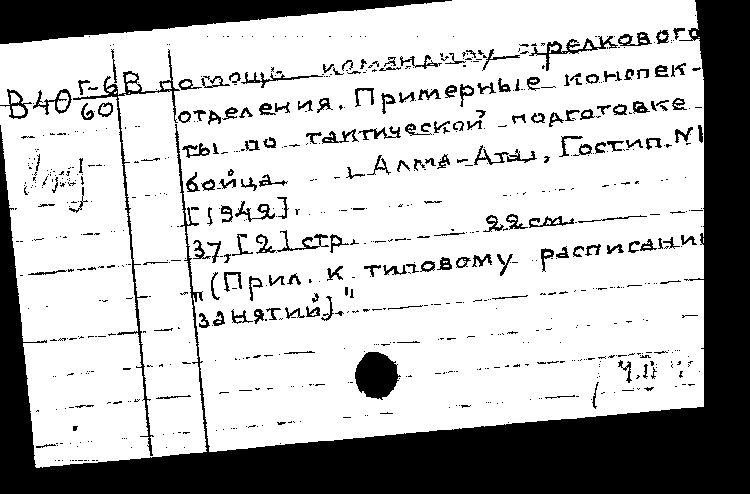 В40 Г-6/60 В помощь командиру стрелкового
отделения. Примерные конспек-
ты по тактической подготовке
бойца. Алма-Ата, Гостип. №1
[1942].
37, [2] стр. 22 см.
"(Прил. к типовому расписани
занятий)."